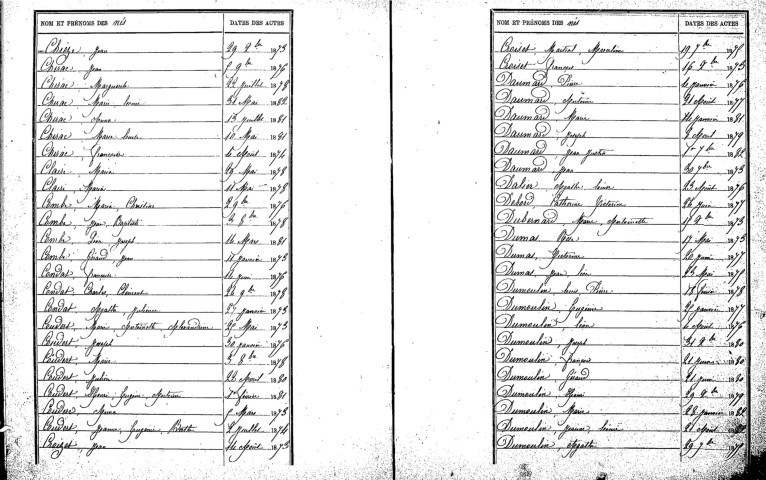 NOM ET PRÉNOMS DES nés DATES DES ACTES
Chèze, Jean 29 9bre 1873
Chirac, Jean 5 9bre 1876
Chirac, Marguerite 22 juillet 1878
Chirac, Marie 31 Mai 1882
Chirac, 13 juillet 1881
Chirac, Marie 10 Mai 1881
Chirac, Françoise 6 Août 1874
Claux, Maria 29 Mai 1878
Claux, Maria 11 Mai 1878
Combe, Maria, Christine 29 9bre 1876
Combe, Jean Baptiste 3 8bre 1878
Combe, Pierre Joseph 14 Mars 1881
Combe, Géraud, Jean 11 janvier 1873
Condat, Françoise 14 juin 1876
Condat, Charles, Clément 22 9bre 1878
Condat, Agathe, Julienne 27 janvier 1873
Coudert, Marie Antoinette Alexandrine 29 Mai 1873
Coudert, Joseph 30 janvier 1876
Coudert, Marie 3 8bre 1878
Coudert, Julien 22 Avril 1880
Coudert, Henri, Eugène, Antoine 1er février 1881
Coudert, Anna 5 Mars 1873
Coudert, Jeanne, Eugénie, Berthe 2 juillet 1874
Croizet, Jean 14 Août 1873
NOM ET PRÉNOMS DES nés DATES DES ACTES
Croiset, Martial, 19 7bre 1878
Croiset, François 16 9bre 1873
Daumard, Pierre 4 janvier 1876
Daumard, Antoine 21 Août 1877
Daumard, Marie 14 janvier 1881
Daumard, Joseph 9 Août 1879
Daumard, Jean 1er 7bre 1882
Daumard, Jean 30 7bre 1873
Dalier, Agathe 23 Août 1876
Debord, Catherine Victorine 26 juin 1877
Dubernard, Marie Antoinette 17 9bre 1873
Dumas, 17 Mai 1873
Dumas, Victorine 20 juin 1877
Dumas, Jean, Léon 23 Mai 1879
Dumoulin, Pierre 18 février 1878
Dumoulin, Eugène 27 janvier 1877
Dumoulin, Léon 6 Août 1876
Dumoulin, Joseph 31 9bre 1880
Dumoulin, François 21 janvier 1880
Dumoulin, Géraud 21 juin 1880
Dumoulin, Henri 29 9bre 1879
Dumoulin, Marie 28 janvier 1882
Dumoulin, Jeanne, 21 Août
Dumoulin, Agathe 29 7bre 1877